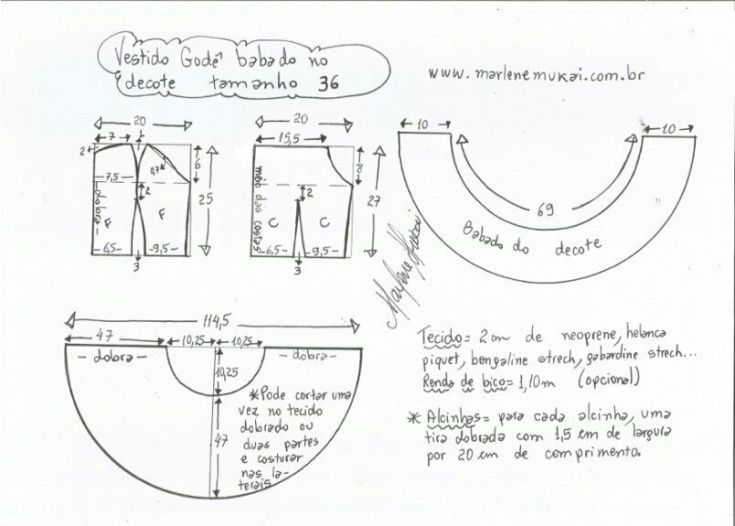 Vestido Godê babado no
decote tamanho 36
www.marlenemukai.com.br
20
7
1
2
7,5
2
9,7
6
25
dobra
F
F
6,5
9,5
3
20
15,5
8
27
meio das costas
2
C
C
6,5
9,5
3
10
10
69
Babado do decote
Marlene Mukai
114,5
47
10,25
10,25
- dobra -
- dobra -
10,25
47
*Pode cortar uma
vez no tecido
dobrado ou
duas partes
e costurar
nas la-
terais
Tecido= 2 cm de neoprene, helanca
piquet, bengaline strech, gabardine strech...
Renda de bico= 1,10m (opcional)
* Alcinhas= para cada alcinha, uma
tira dobrada com 1,5 cm de largura
por 20 cm de comprimento.